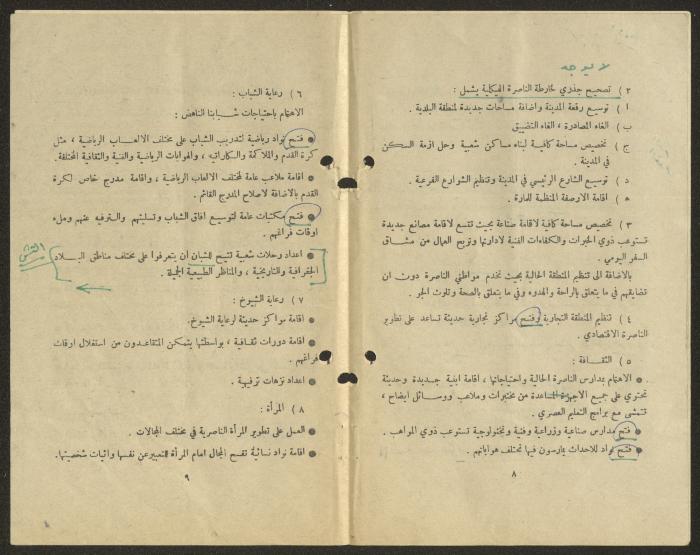 لا يوجد
٢ ) تصحيح جذري لخارطة الناصرة الهيكلية يشمل :
ا ) توسيع رقعة المدينة واضافة مساحات جديدة لمنطقة البلدية .
ب ) الغاء المصادرة ، الغاء التضييق
ج ) تخصيص مساحة كافية لبناء مساكن شعبية وحل ازمة السكن
في المدينة .
د ) توسيع الشارع الرئيسي في المدينة وتنظيم الشوارع الفرعية .
ه ) اقامة الارصفة المنظمة للمارة .
٣ ) تخصيص مساحة كافية لاقامة صناعة بحيث تتسع لاقامة مصانع جديدة
تستوعب ذوي الخبرات والكفاءات الفنية لادارتها وتريح العمال من مشاق
السفر اليومي .
بالاضافة الى تنظيم المنطقة الحالية بحيث تخدم مواطني الناصرة دون ان
تضايقهم في ما يتعلق بالراحة والهدوء وفي ما يتعلق بالصحة وتلوث الجو .
٤ ) تنظيم المنطقة التجارية وفتح مراكز تجارية حديثة تساعد على تطوير
الناصرة الاقتصادي .
٥ ) الثقافة :
● الاهتمام بمدارس الناصرة الحالية واحتياجاتها ، اقامة ابنية جديدة وحديثة
تحتوي على جميع الاجهزة المساعدة من مختبرات وملاعب ووسائل ايضاح ،
تتمشى مع برامج التعليم العصري .
● فتح مدارس صناعية وزراعية وفنية وتكنولوجية تستوعب ذوي المواهب .
● فتح نواد للاحداث يمارسون فيها مختلف هواياتهم .
٨
٦ ) رعاية الشباب :
الاهتمام باحتياجات شبابنا الناهض :
● فتح نواد رياضية لتدريب الشباب على مختلف الالعاب الرياضية ، مثل
كرة القدم والملاكمة والكاراتيه ، والهوايات الرياضية والفنية والثقافية المختلفة.
● اقامة ملاعب عامة لمختلف الالعاب الرياضية ، واقامة مدرج خاص لكرة
القدم بالاضافة لاصلاح المدرج القائم .
● فتح مكتبات عامة لتوسيع افاق الشباب وتسليتهم والترفيه عنهم وملء
اوقات فراغهم .
● اعداد رحلات شعبية تتيح للشبان أن يتعرفوا على مختلف مناطق البلاد
الجغرافية والتاريخية ، والمناظر الطبيعية الجميلة .
٧ ) رعاية الشيوخ :
● اقامة مراكز حديثة لرعاية الشيوخ.
● اقامة دورات ثقافية ، بواسطتها يتمكن المتقاعدون من استغلال اوقات
فراغهم .
● اعداد نزهات ترفيهية .
٨ ) المرأة :
● العمل على تطوير المرأة الناصرية في مختلف المجالات .
● اقامة نواد نسائية تفسح المجال امام المرأة للتعبير عن نفسها واثبات شخصيتها.
٩